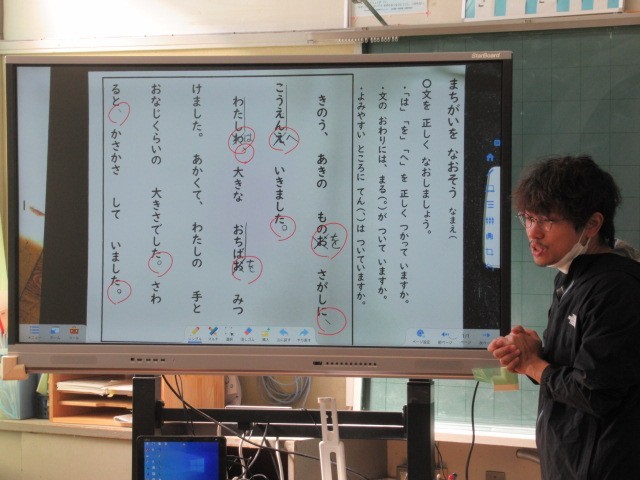 StarBoard
まちがいを なおそう なまえ(
〇文を 正しく なおしましょう。
・「は」「を」「へ」を 正しく つかって いますか。
・文の おわりには、まる(。)が ついて いますか。
・よみやすい ところに てん(、)は ついていますか。
きのう、 あきの ものお を さがしに、
こうえんえ へ いきました。
わたしわ は、 大きな おちばお を みつ
けました。 あかくて、 わたしの 手と
おなじくらいの 大きさでした。 さわ
ると、かさかさ して いました。